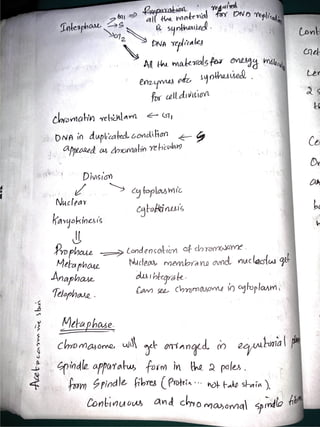 Preparation required
Interphase → G1 ⇒ all the material for DNA replication
→ S is synthesised.
→ G2 DNA replicates
All the materials for energy
enzymes etc synthesised.
for cell division
Chromatin reticulam ← G1
DNA in duplicated condition ← S
appeared as chromatin reticulam
Division
Nuclear
cytoplasmic
Karyokinesis
cytokinesis
Prophase → Condensation of chromosome
Metaphase Nuclear membrane and nucleolus get
Anaphase disintegrate.
Telophase. Can see chromosome in cytoplasm.
Acetocarmine stain
Metaphase
Chromosome will get arranged in equitorial
Spindle apparatus form in the 2 poles.
form Spindle fibres (Protein... not take stain).
Continuous and chromosomal spindle